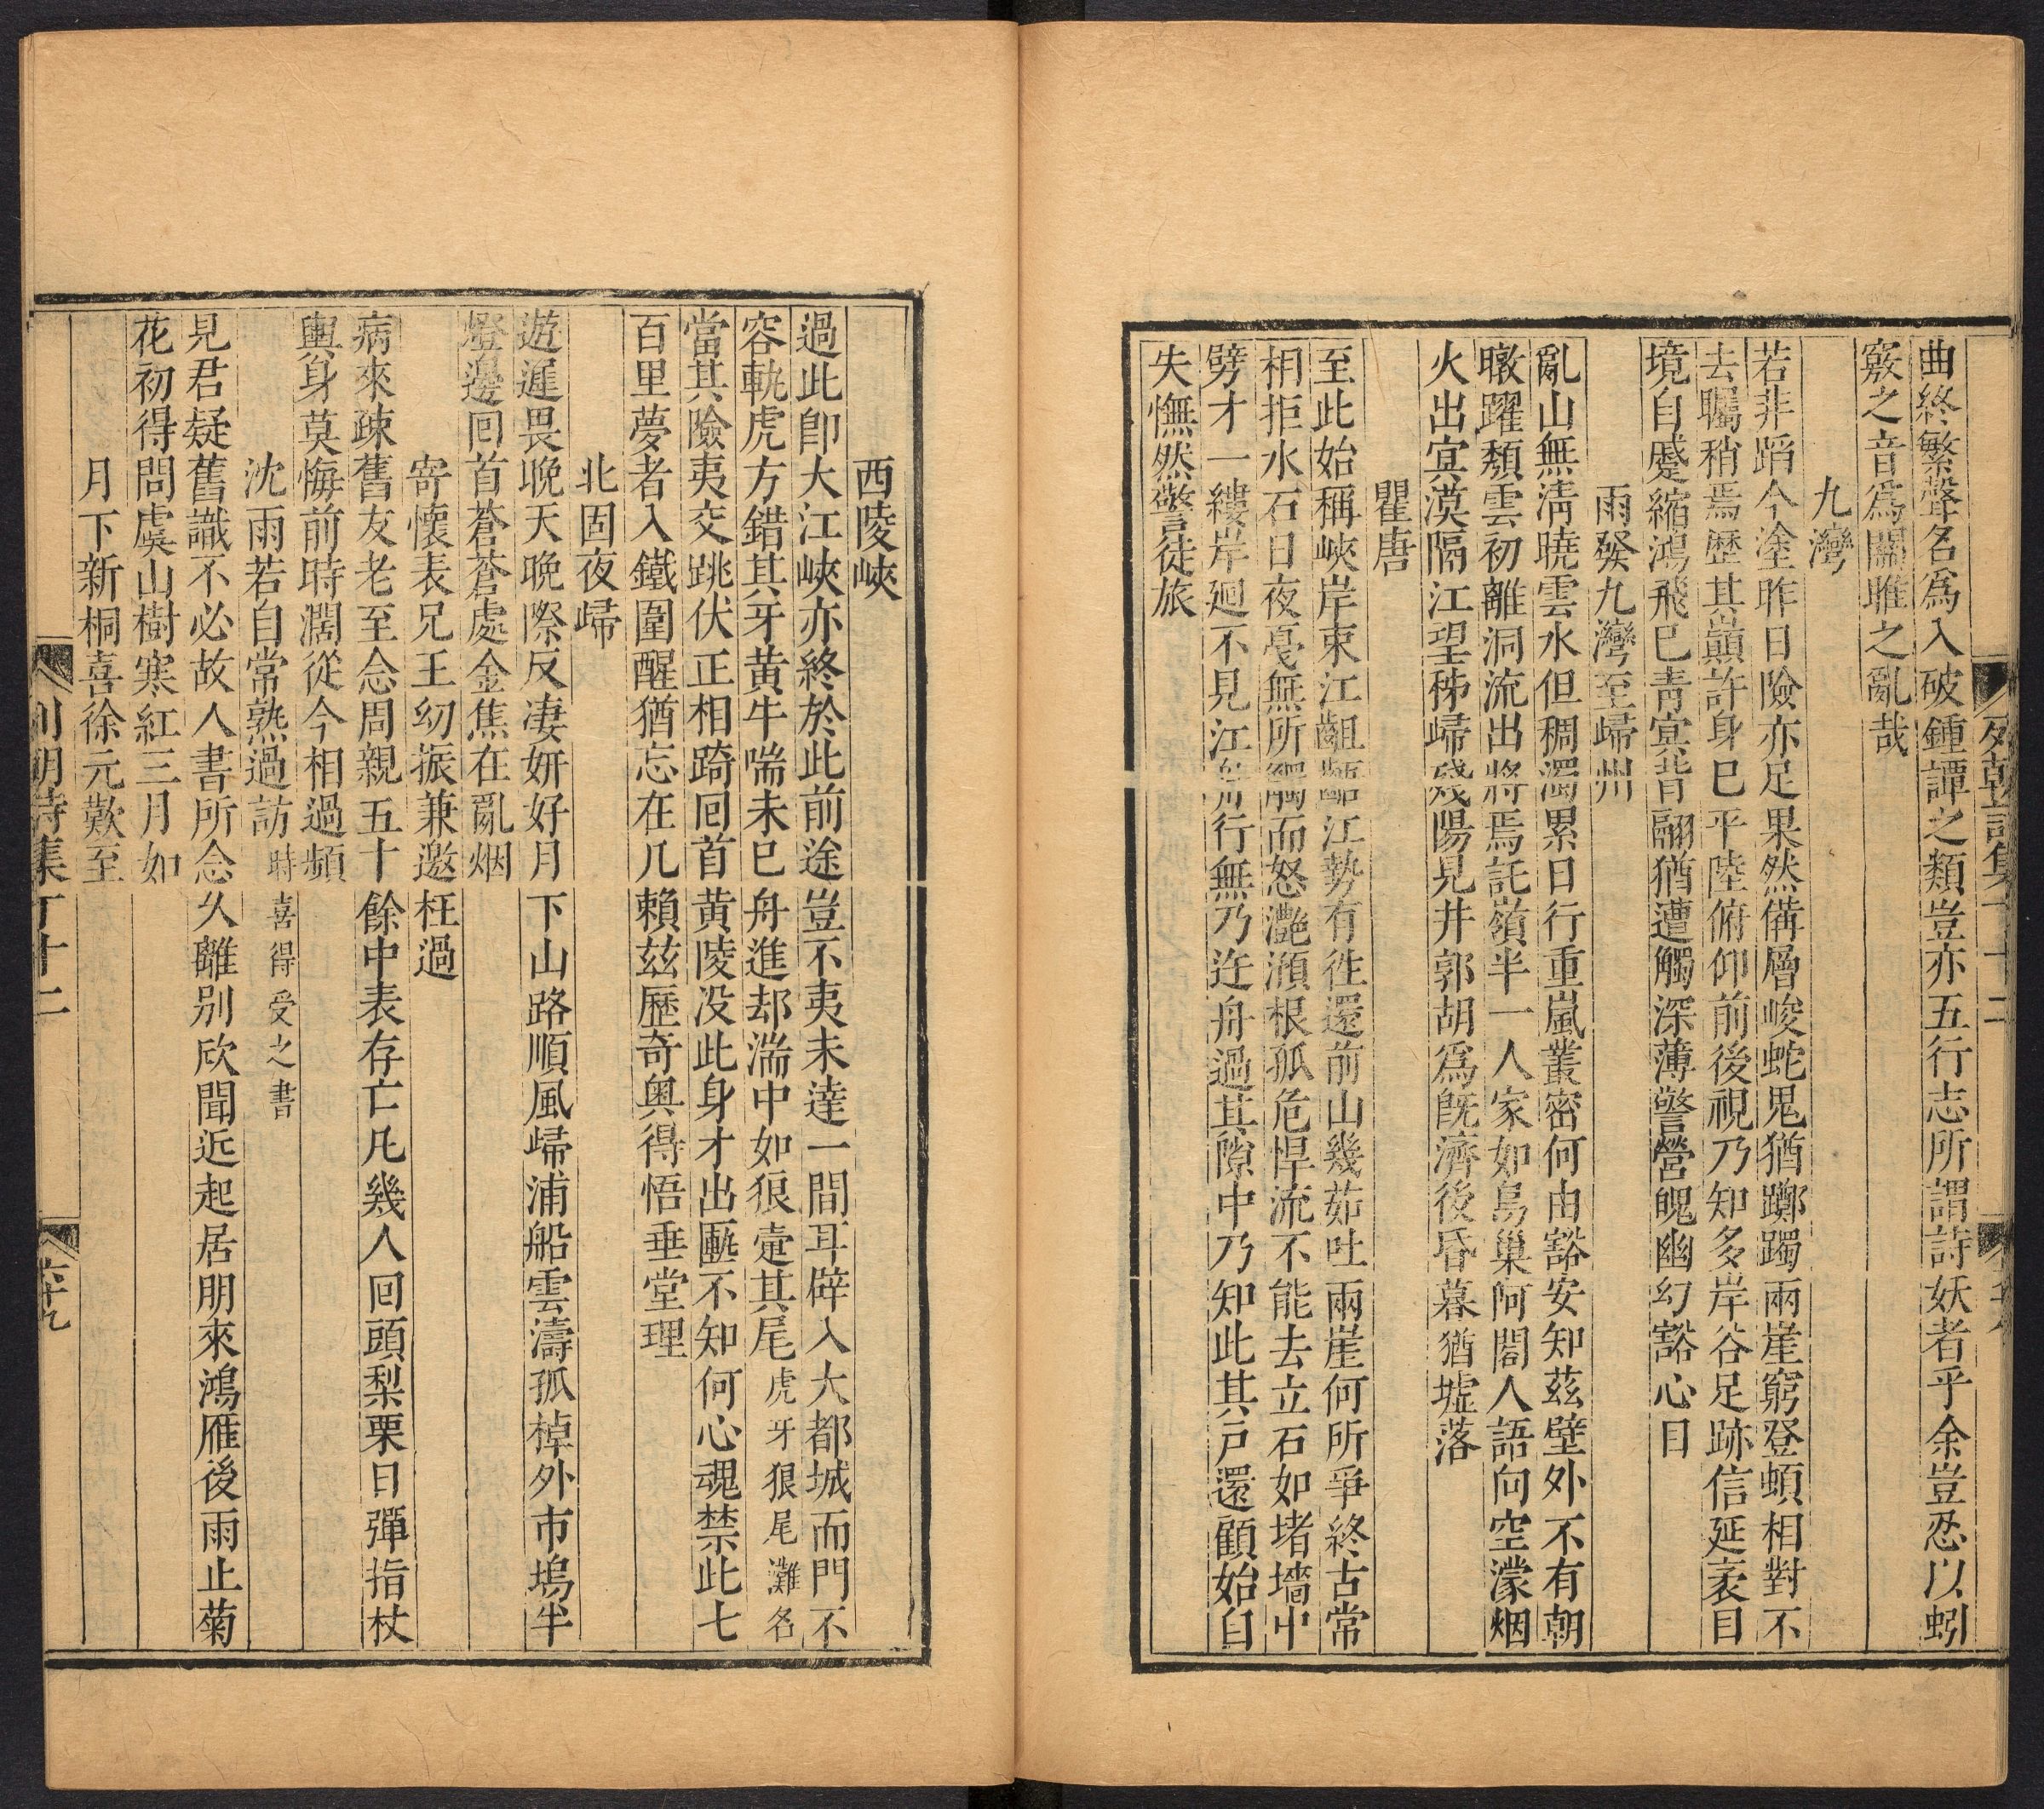 列朝詩集丁十二
曲終繁聲名為入破鍾譚之類豈亦五行志所謂詩妖者乎余豈忍以蚓
竅之音為關雎之亂哉
九灣
若非蹈今塗昨日險亦足果然備層峻蛇鬼猶躑躅兩崖窮登頓相對不
去矚稍焉歷其巔許身已平陸俯仰前後視乃知多岸谷足跡信延袤目
境自蹙縮鴻飛已青冥背翮猶遭觸深薄警營魄幽幻豁心目
雨發九灣至歸州
亂山無淸曉雲水但稠濁累日行重嵐叢密何由豁安知茲壁外不有朝
暾躍頹雲初離洞流出將焉託嶺半一人家如鳥巢阿閣人語向空濛烟
火出㝠漠隔江望秭歸殘陽見井郭胡為既濟後昏暮猶墟落
瞿唐
至此始稱峽岸束江齟齬江勢有徃還前山幾茹吐兩崖何所爭終古常
相拒水石日夜戛無所觸而怒灔澦根孤危悍流不能去立石如堵墻中
劈才一縷岸廻不見江舟行無乃迕舟過其隙中乃知此其戸還顧始自
失憮然警徒旅
西陵峽
過此卽大江峽亦終於此前途豈不夷未達一間耳辟入大都城而門不
容軌虎方錯其牙黄牛喘未已舟進却湍中如狼疐其尾虎牙狼尾灘名
當其險夷交跳伏正相踦回首黄陵沒此身才出匭不知何心魂禁此七
百里夢者入鐵圍醒猶忘在几賴茲歷奇奥得悟垂堂理
北固夜歸
遊遲畏晚天晚際反凄妍好月下山路順風歸浦船雲濤孤棹外市塢半
燈邊回首蒼蒼處金焦在亂烟
寄懷表兄王幼振兼邀枉過
病來疎舊友老至念周親五十餘中表存亡凡幾人回頭梨栗日彈指杖
輿身莫悔前時濶從今相過頻
沈雨若自常熟過訪時喜得受之書
見君疑舊識不必故人書所念久離别欣聞近起居朋來鴻雁後雨止菊
花初得問虞山樹寒紅三月如
月下新桐喜徐元歎至
列朝詩集丁十二
六十九